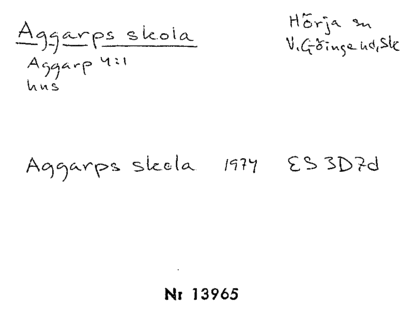 Aggarps skola
Hörja sn
V. Göinge hd, Sk
Aggarp 4:1
hus
Aggarps skola 1974 ES 3D7d
Nr 13965